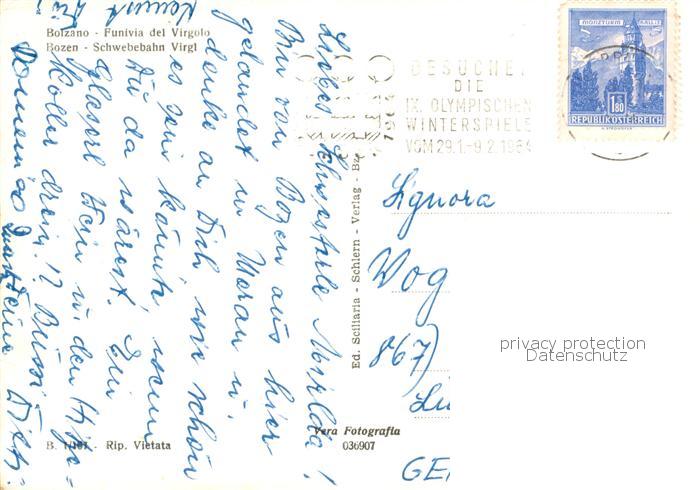 Bolzano - Funivia del Virgolo
Bozen - Schwebebahn Virgl
Liebes Schwesterle
Bin von Bozen aus hier
gelandet in Meran u.
denke an Dich wie schön
es sein könnte, wenn
Du da wärest! Ein
Glaserl Wein in den
Koller drein!? Bussi
Deine
Ed. Sciliaria - Schlern - Verlag - Bz
BESUCHET
DIE
IX. OLYMPISCHEN
WINTERSPIELE
VOM 29.1.-9.2.1964
1964
MÜNZTURM HALL I. T.
1.80
REPUBLIK ÖSTERREICH
Signora
Vog
867)
Lu
GE
privacy protection
Datenschutz
B. - Rip. Vietata
Vera Fotografia
036907